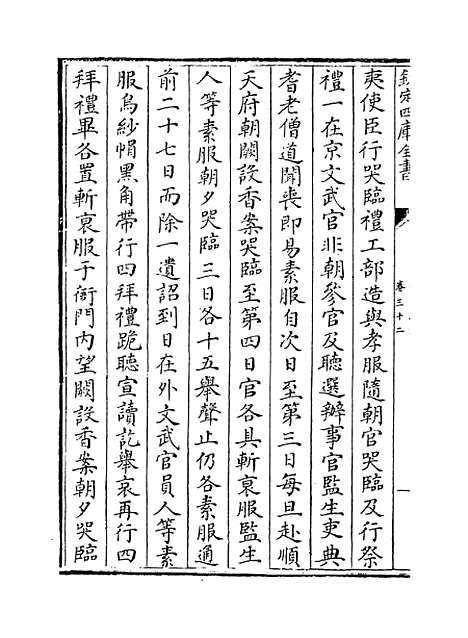 欽定四庫全書
卷三十二
一
夷使臣行哭臨禮工部造與孝服隨朝官哭臨及行祭
禮一在京文武官非朝參官及聽選辦事官監生吏典
耆老僧道聞喪即易素服自次日至第三日每旦赴順
天府朝闕設香案哭臨至第四日官各具斬衰服監生
人等素服朝夕哭臨三日各十五舉聲止仍各素服通
前二十七日而除一遺詔到日在外文武官員人等素
服烏紗帽黑角帶行四拜禮跪聽宣讀訖舉哀再行四
拜禮畢各置斬衰服于衙門內望闕設香案朝夕哭臨